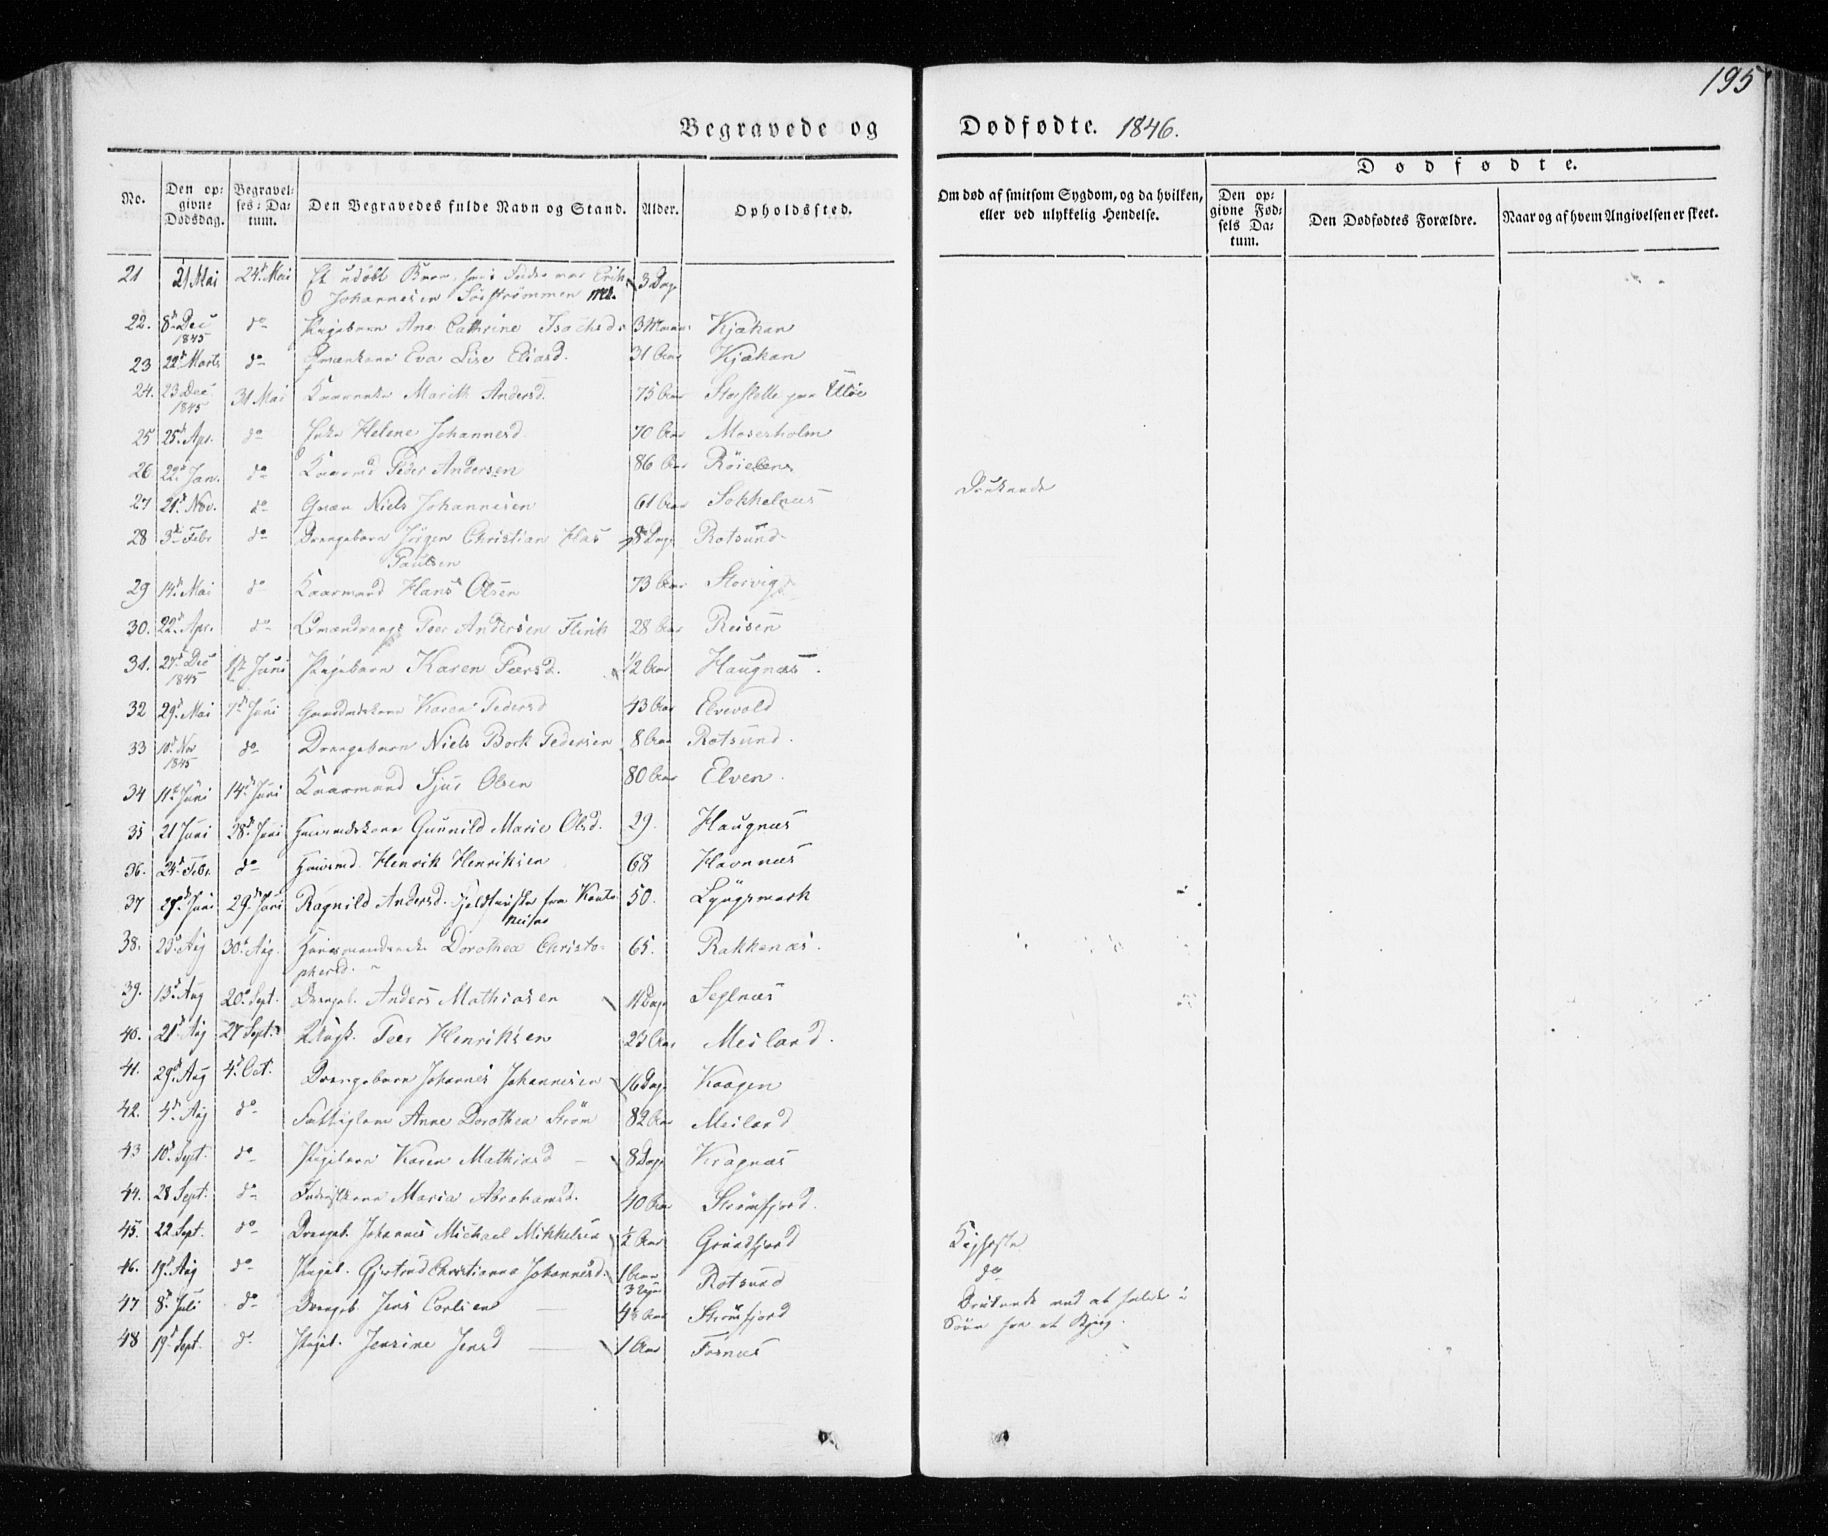 195
Begravede og Dødfødte. 1846.
Dødfødte.
No. Den opgivne Dødsdag. Begravelses-Datum. Den Begravedes fulde Navn og Stand. Alder. Opholdssted. Om død af smitsom Sygdom, og da hvilken, eller ved ulykkelig Hendelse. Den opgivne Fødsels Datum. Den Dødfødtes Forældre. Naar og af hvem Angivelsen er skeet.
21 21 Mai 24d Mai Et udøbt Barn, hvis Fader var Erik 3 Dage
Johannesen Sørstrømmen
22. 8d Dec 1845 do Pigebarn Ane Cathrine Isachsd. 3 Kjækan
23 22d Marts do Eva Lise Eliasd. 31 Aar Kjækan
24. 23 Dec 1845 31 Mai Marith Andersd. 75 Aar paa Uløe
25 25d Apr. do Enke Helene Johannesd. 70 Aar Moserholm
26 22d Jan. do Peder Andersen 86 Aar Røielen
27 21d Nov. do Qvæn Niels Johannesen 61 Aar Sokkelnæs Druknede
28 3d Febr do Drengebarn Jörgen Christian 8 Dage Rotsund
Paulsen
29 14d Mai do Kaarmand Hans Olsen 73 Aar Storvig
30. 22d Apr. do Peer Andersen Flink 28 Aar Reisen
31. 27d Dec 1845 1st Juni Pigebarn Karen Peersd. 1/2 Aar Haugnæs.
32 29d Mai 7d Juni Karen Pedersd 43 Aar Elvevold
33 10d Nov 1845 do Drengebarn Niels Bock Pedersen 8 Aar Rotsund.
34 11te Juni 14d Juni Kaarmand Sjur Olsen 80 Aar Elven.
35 21 Juni 28d Juni Gunnild Marie Olsd. 29. Haugnæs
36. 24d Febr. do Huusmd. Henrik Henriksen 68 Havnnæs
37 27d Juni 29d Juni Ragnild Andersd. fra Kauto- 50. Lyngsmark
keino
38. 23d Aug 30d Aug. Dorothea Christo- 65. Rakkenæs.
phersd.
39. 13d Aug 20d Sept. Drengeb. Anders Mathiasen 11 Dage Seglnæs
40. 21d Aug 27 Sept. Peer Henriksen 23 Aar Meiland.
41. 29d Aug 4d Oct. Drengebarn Johannes Johannesen 16 Dage Kaagen
42. 4d Aug do Fattiglem Anne Dorothea Strøm 82 Aar Meiland
43 10d Sept. do Pigebarn Karen Mathiasd 8 Dage Kragnæs
44. 28 Sept. do Maria Abrahamsd. 40 Aar Strømfjord.
45. 22 Sept. do Drengeb. Johannes Michael Mikkelsen 1/2 Aar Grundfjord Kighoste
46. 19d Aug do Pigeb. Gjertrud Christianna Johannesd. 1 Aar 3 Uger Rotsund do
47 8d Juli do Drengeb. Jens Carlsen 4 1/2 Aar Strømfjord Druknede ved at falde i
Søen fra et Bjerg.
48 19d Sept. do Pigeb. Jensine Jensd 1 Aar Fornæs